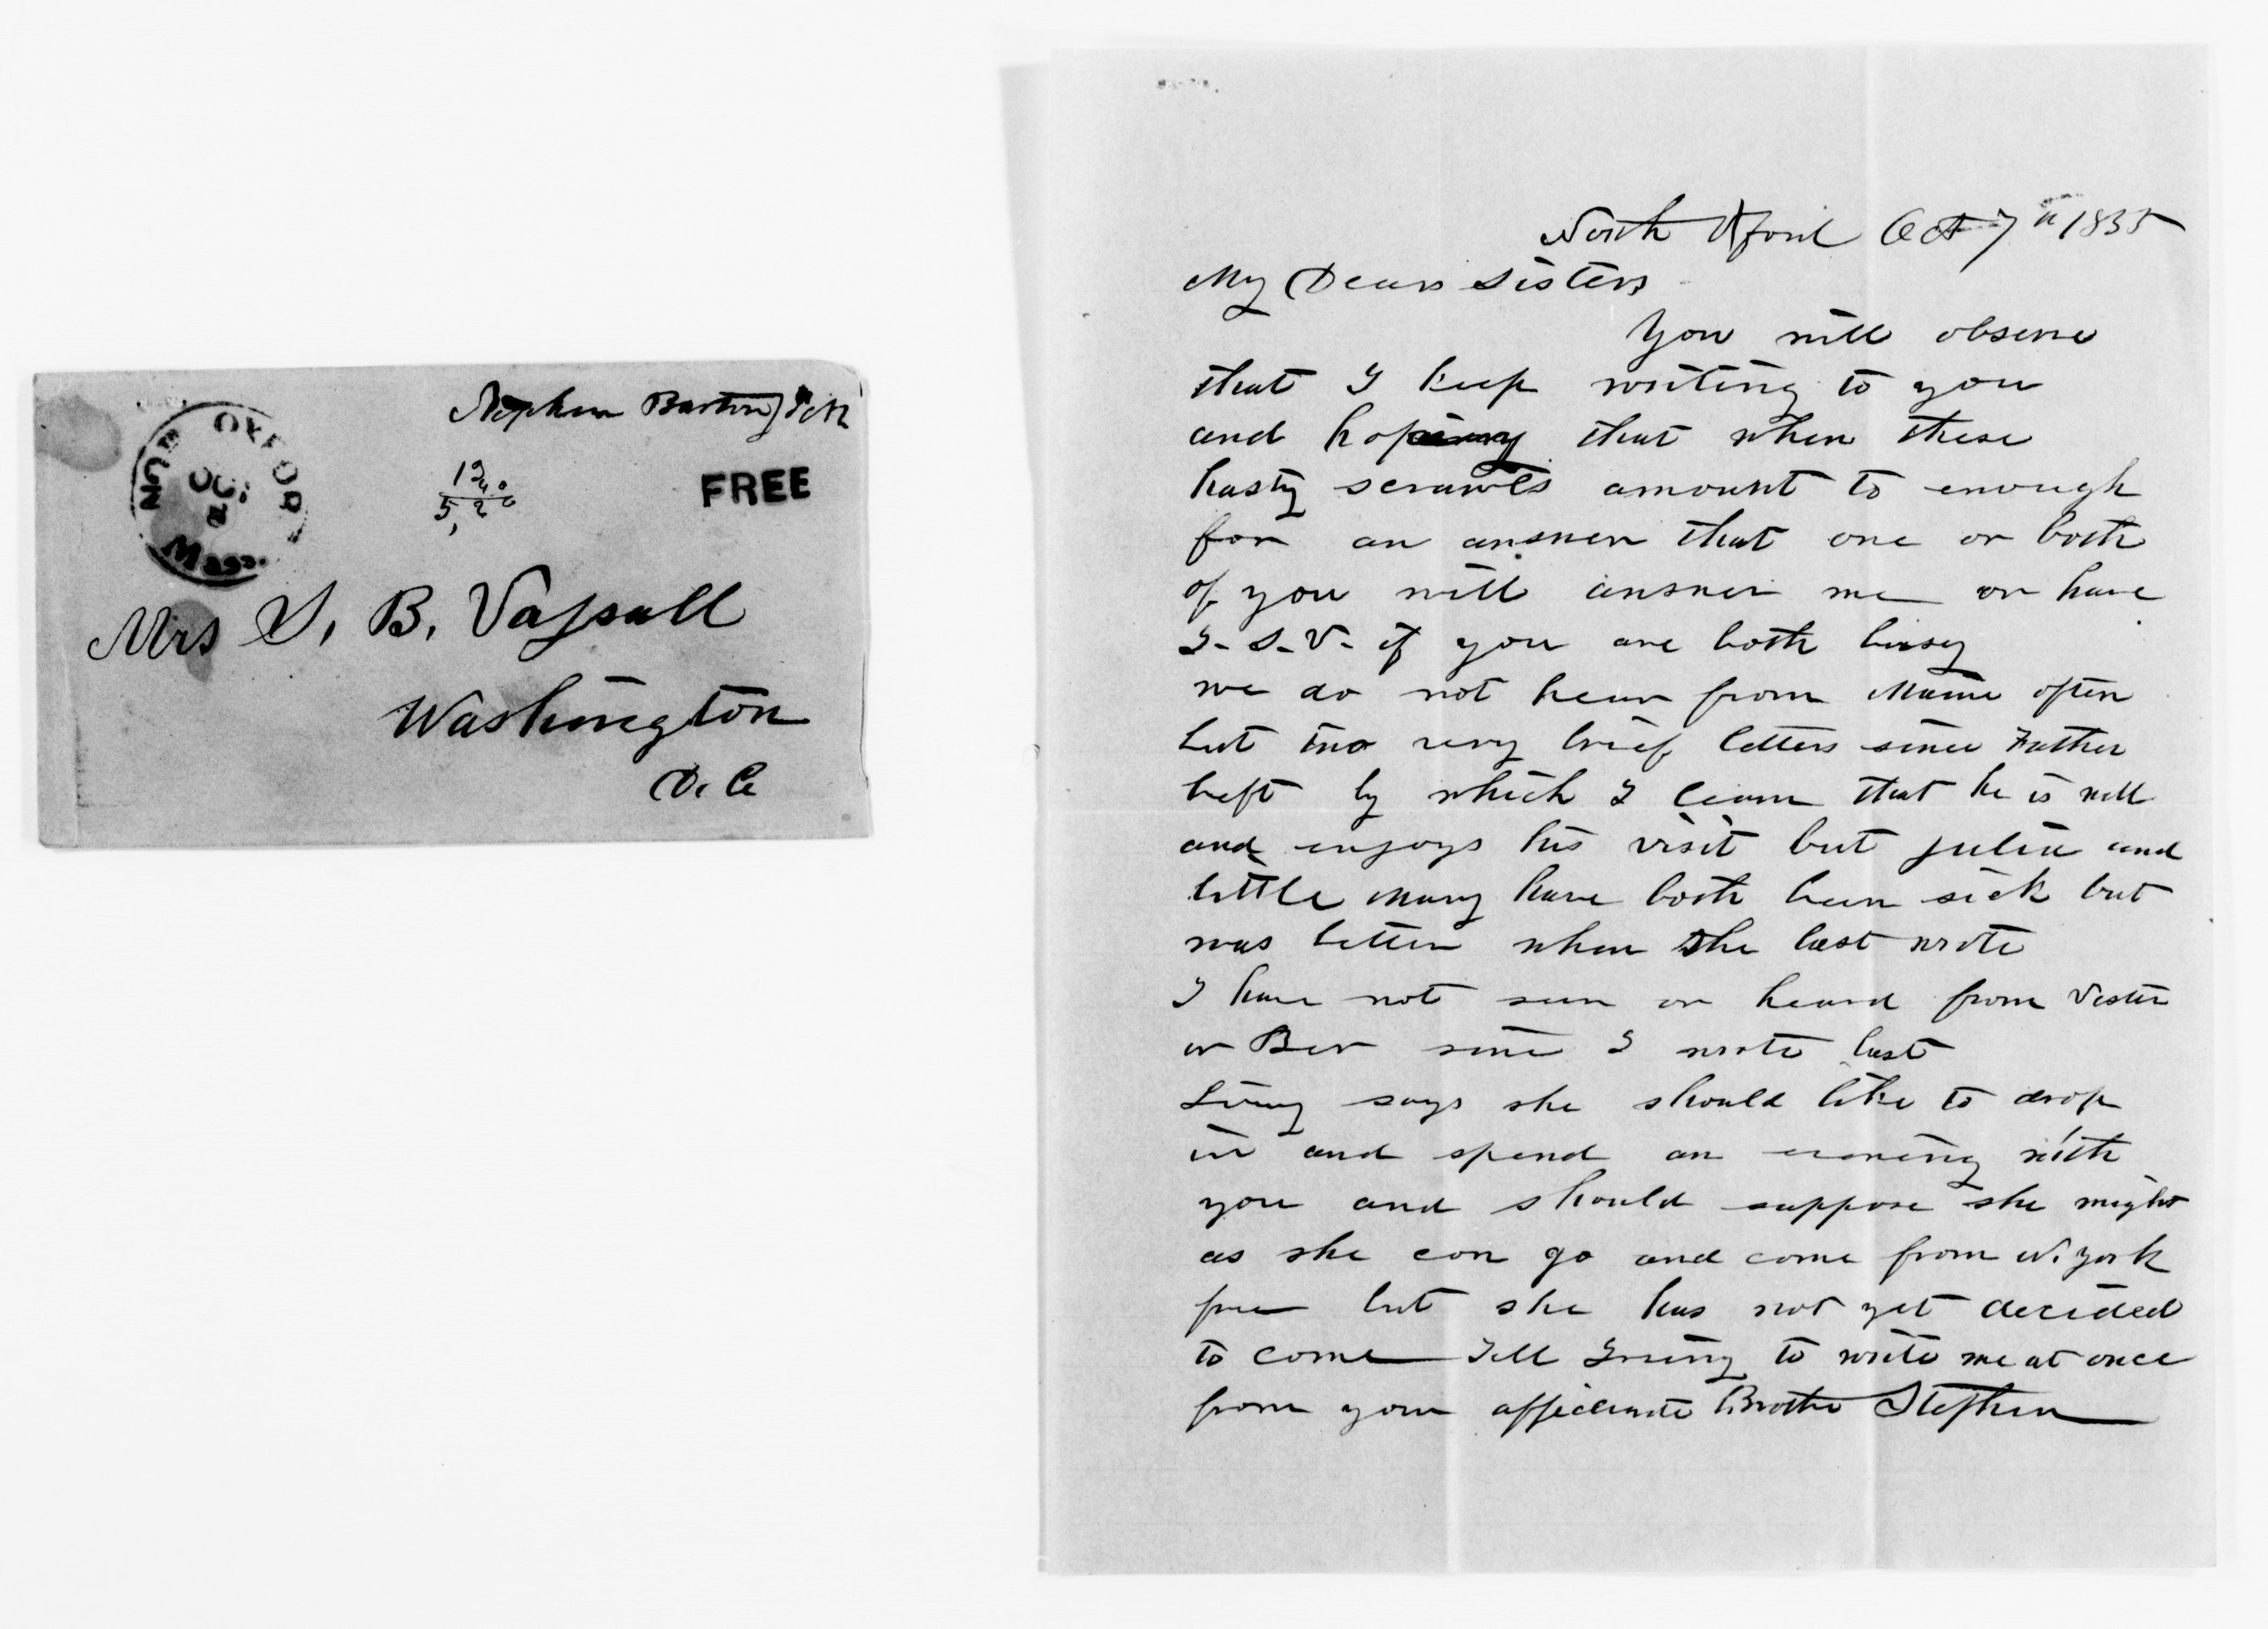 Stephen Barton Jr P.M.
FREE
NOR OXFORD
OCT
Mass.
Mrs S. B. Vassall
Washington
D. C
North Oxford Oct 7th 1855
My Dear Sisters
You will observe
that I keep writing to you
and hoping that when these
hasty scrawls amount to enough
for an answer that one or both
of you will answer me or have
I. S. V. if you are both busy
we do not hear from Maine often
but two very brief letters since Father
left by which I learn that he is well
and enjoys his visit but Julia and
little Mary have both been sick but
was better when she last wrote
I have not seen or heard from Vester
or Ber since I wrote last
says she should like to drop
in and spend an evening with
you and should suppose she might
as she can go and come from N. York
free but she has not yet decided
to come Tell Irving to write me at once
from your affectionate Brother Stephen